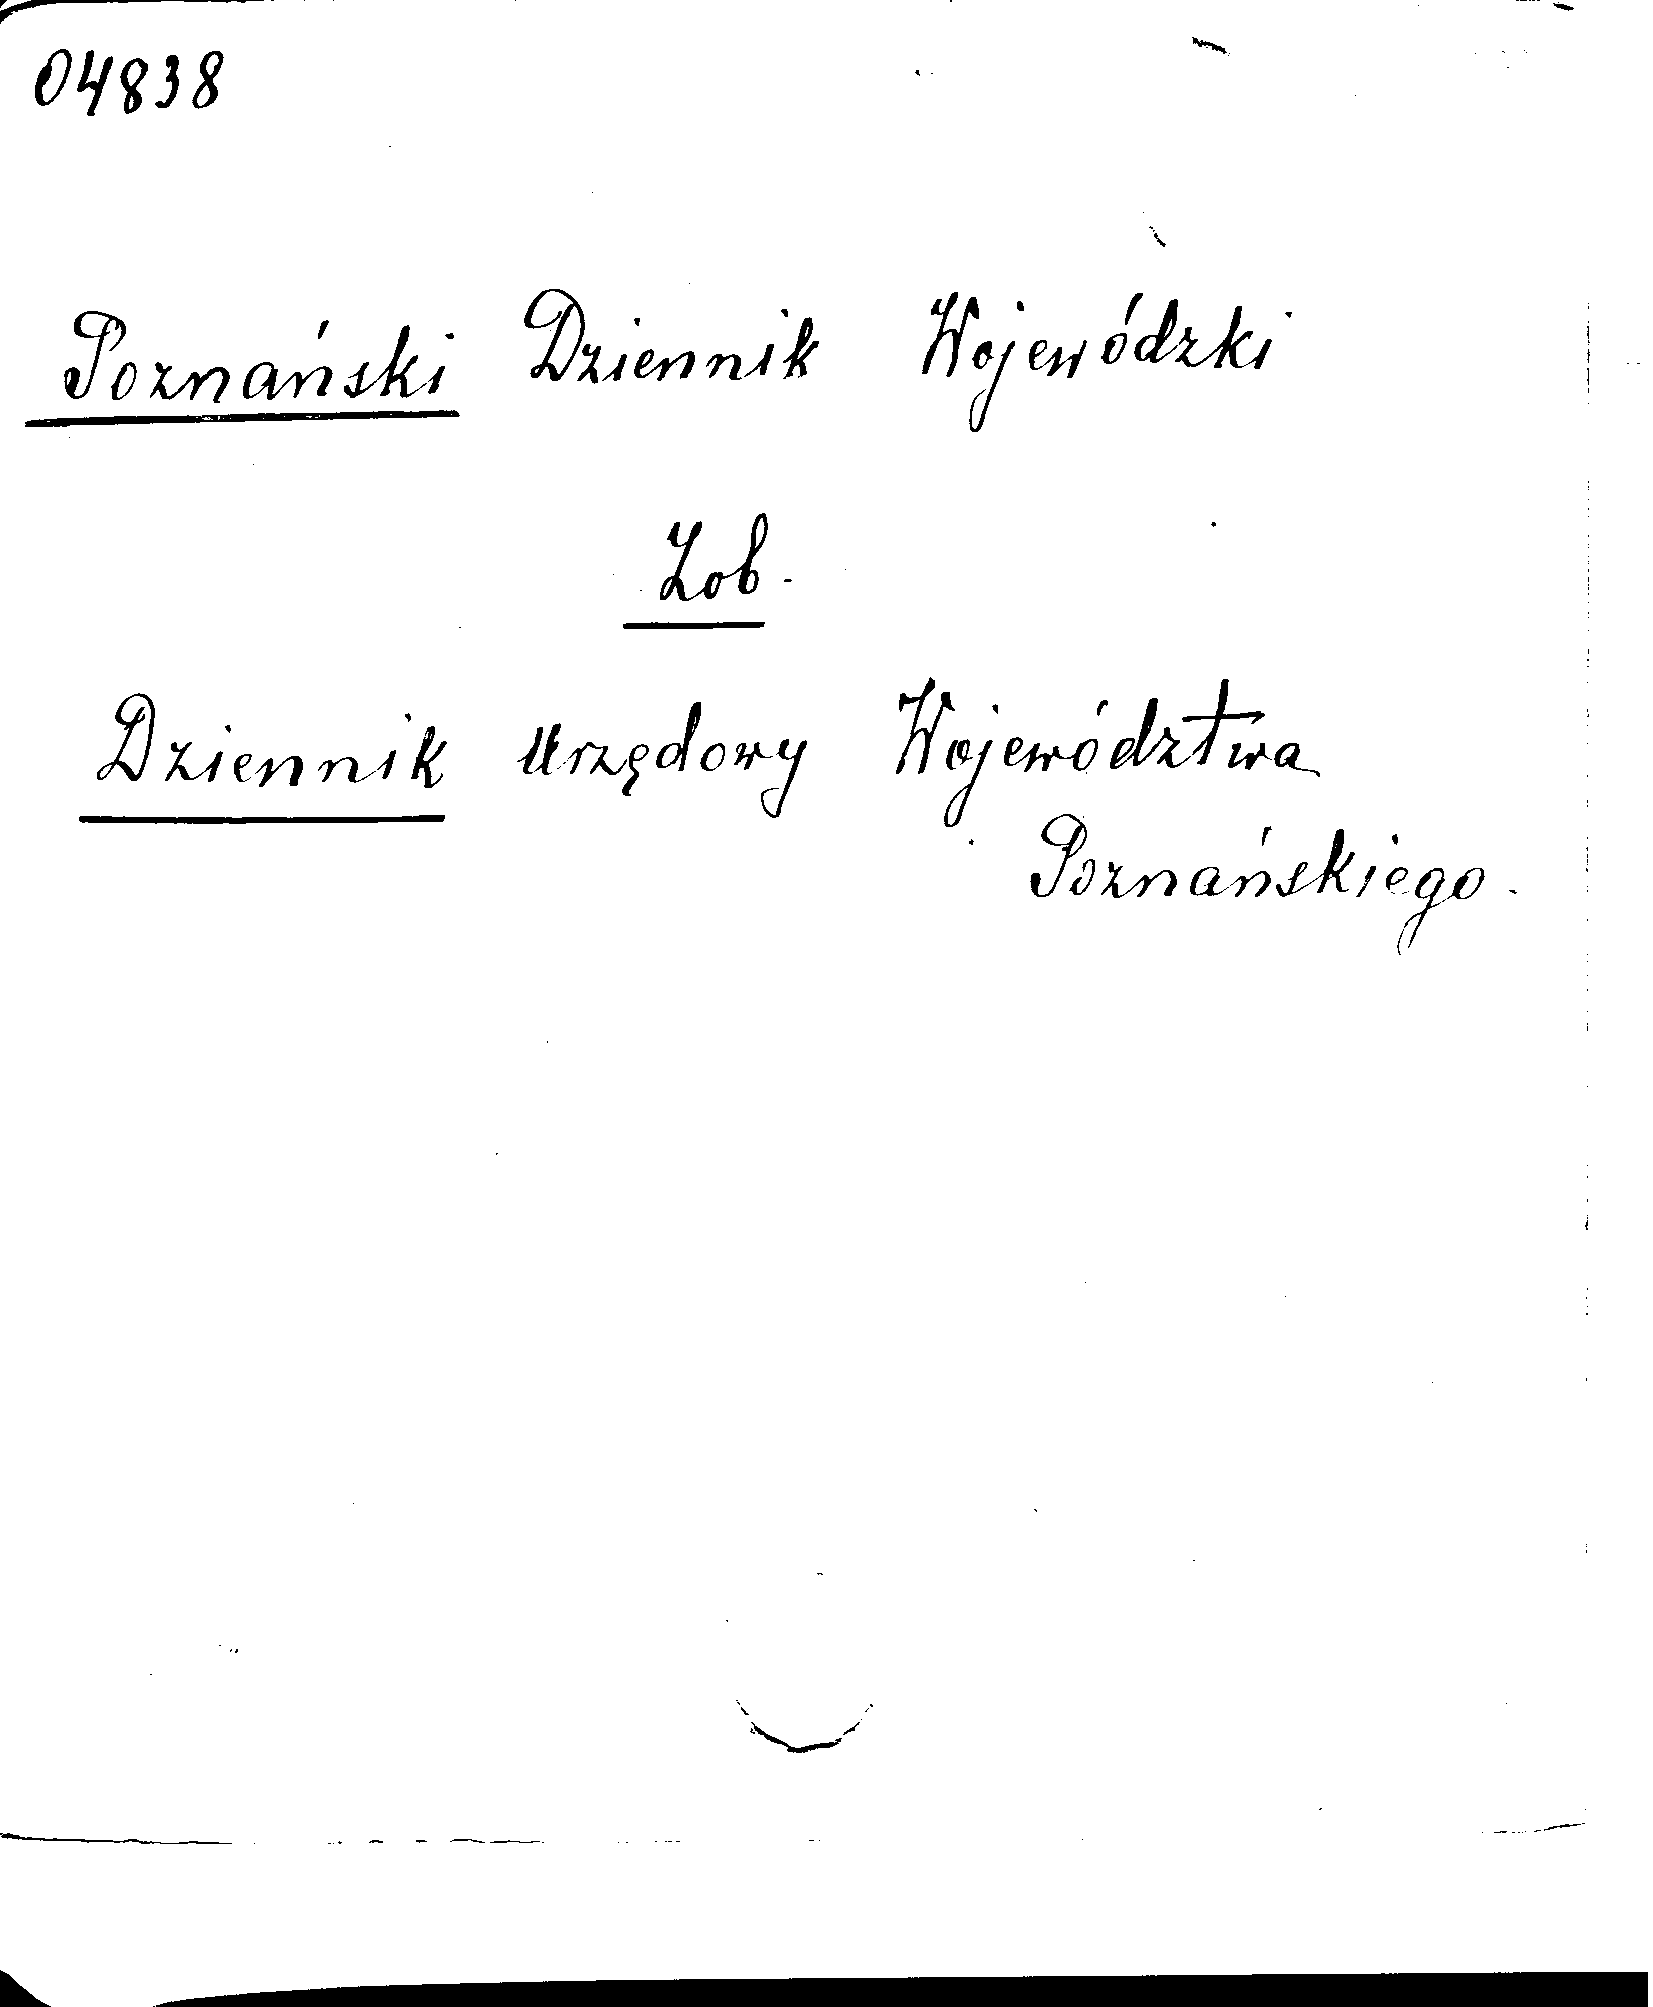 04838
Poznański Dziennik Wojewódzki
Zob.
Dziennik Urzędowy Województwa
Poznańskiego.